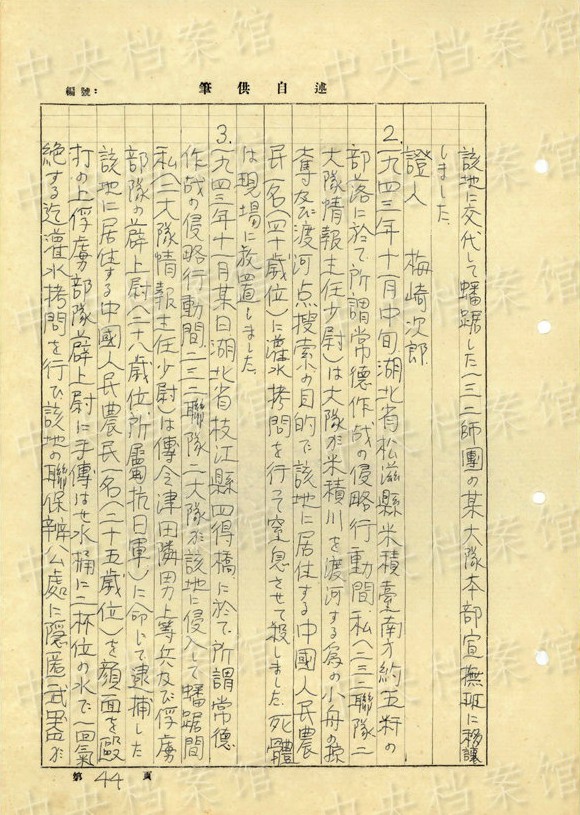 中央档案馆
編號：
筆供自述
該地に交代して蟠踞した一三二師團の某大隊本部宣撫班に移譲
しました
證人　梅崎次郎
2.一九四三年十一月中旬湖北省松滋縣米積臺南方約五粁の
部落に於て所謂常德作战の侵略行動間、私(二三二聯隊二
大隊情報主任少尉)は大隊が米積川を渡河する為の小舟の掠
奪及び渡河点搜索の目的で該地に居住する中國人民農
民一名(四十歳位)に灌水拷問を行って窒息させて殺しました、死體
は現場に放置しました。
3.一九四三年十一月某日湖北省枝江縣四得橋に於て、所謂常德
作战の侵略行動間、二三二聯隊二大隊が該地に侵入して蟠踞間
私(二大隊情報主任少尉)は傳令津田隣男上等兵及び俘虜
部隊の薜上尉(二十八歳位、所屬抗日軍)に命じて逮捕した
該地に居住する中國人民農民一名(二十五歳位)を顔面を毆
打の上俘虜部隊薜上尉に手傳はせ水桶に二杯位の水で一回氣
絶する迄灌水拷問を行ひ該地の聯保辦公處に隱匿武器が
第44頁